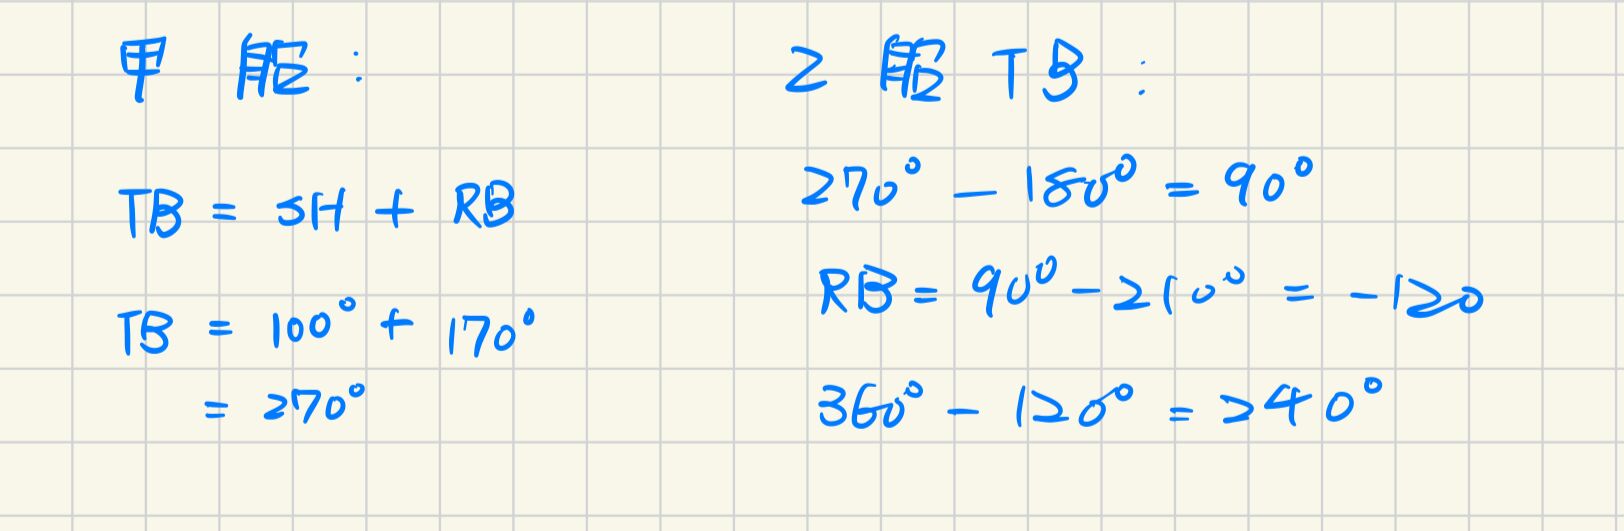 甲船:
TB = SH + RB
TB = 100° + 170°
= 270°
乙船 TB:
270° - 180° = 90°
RB = 90° - 210° = -120
360° - 120° = 240°